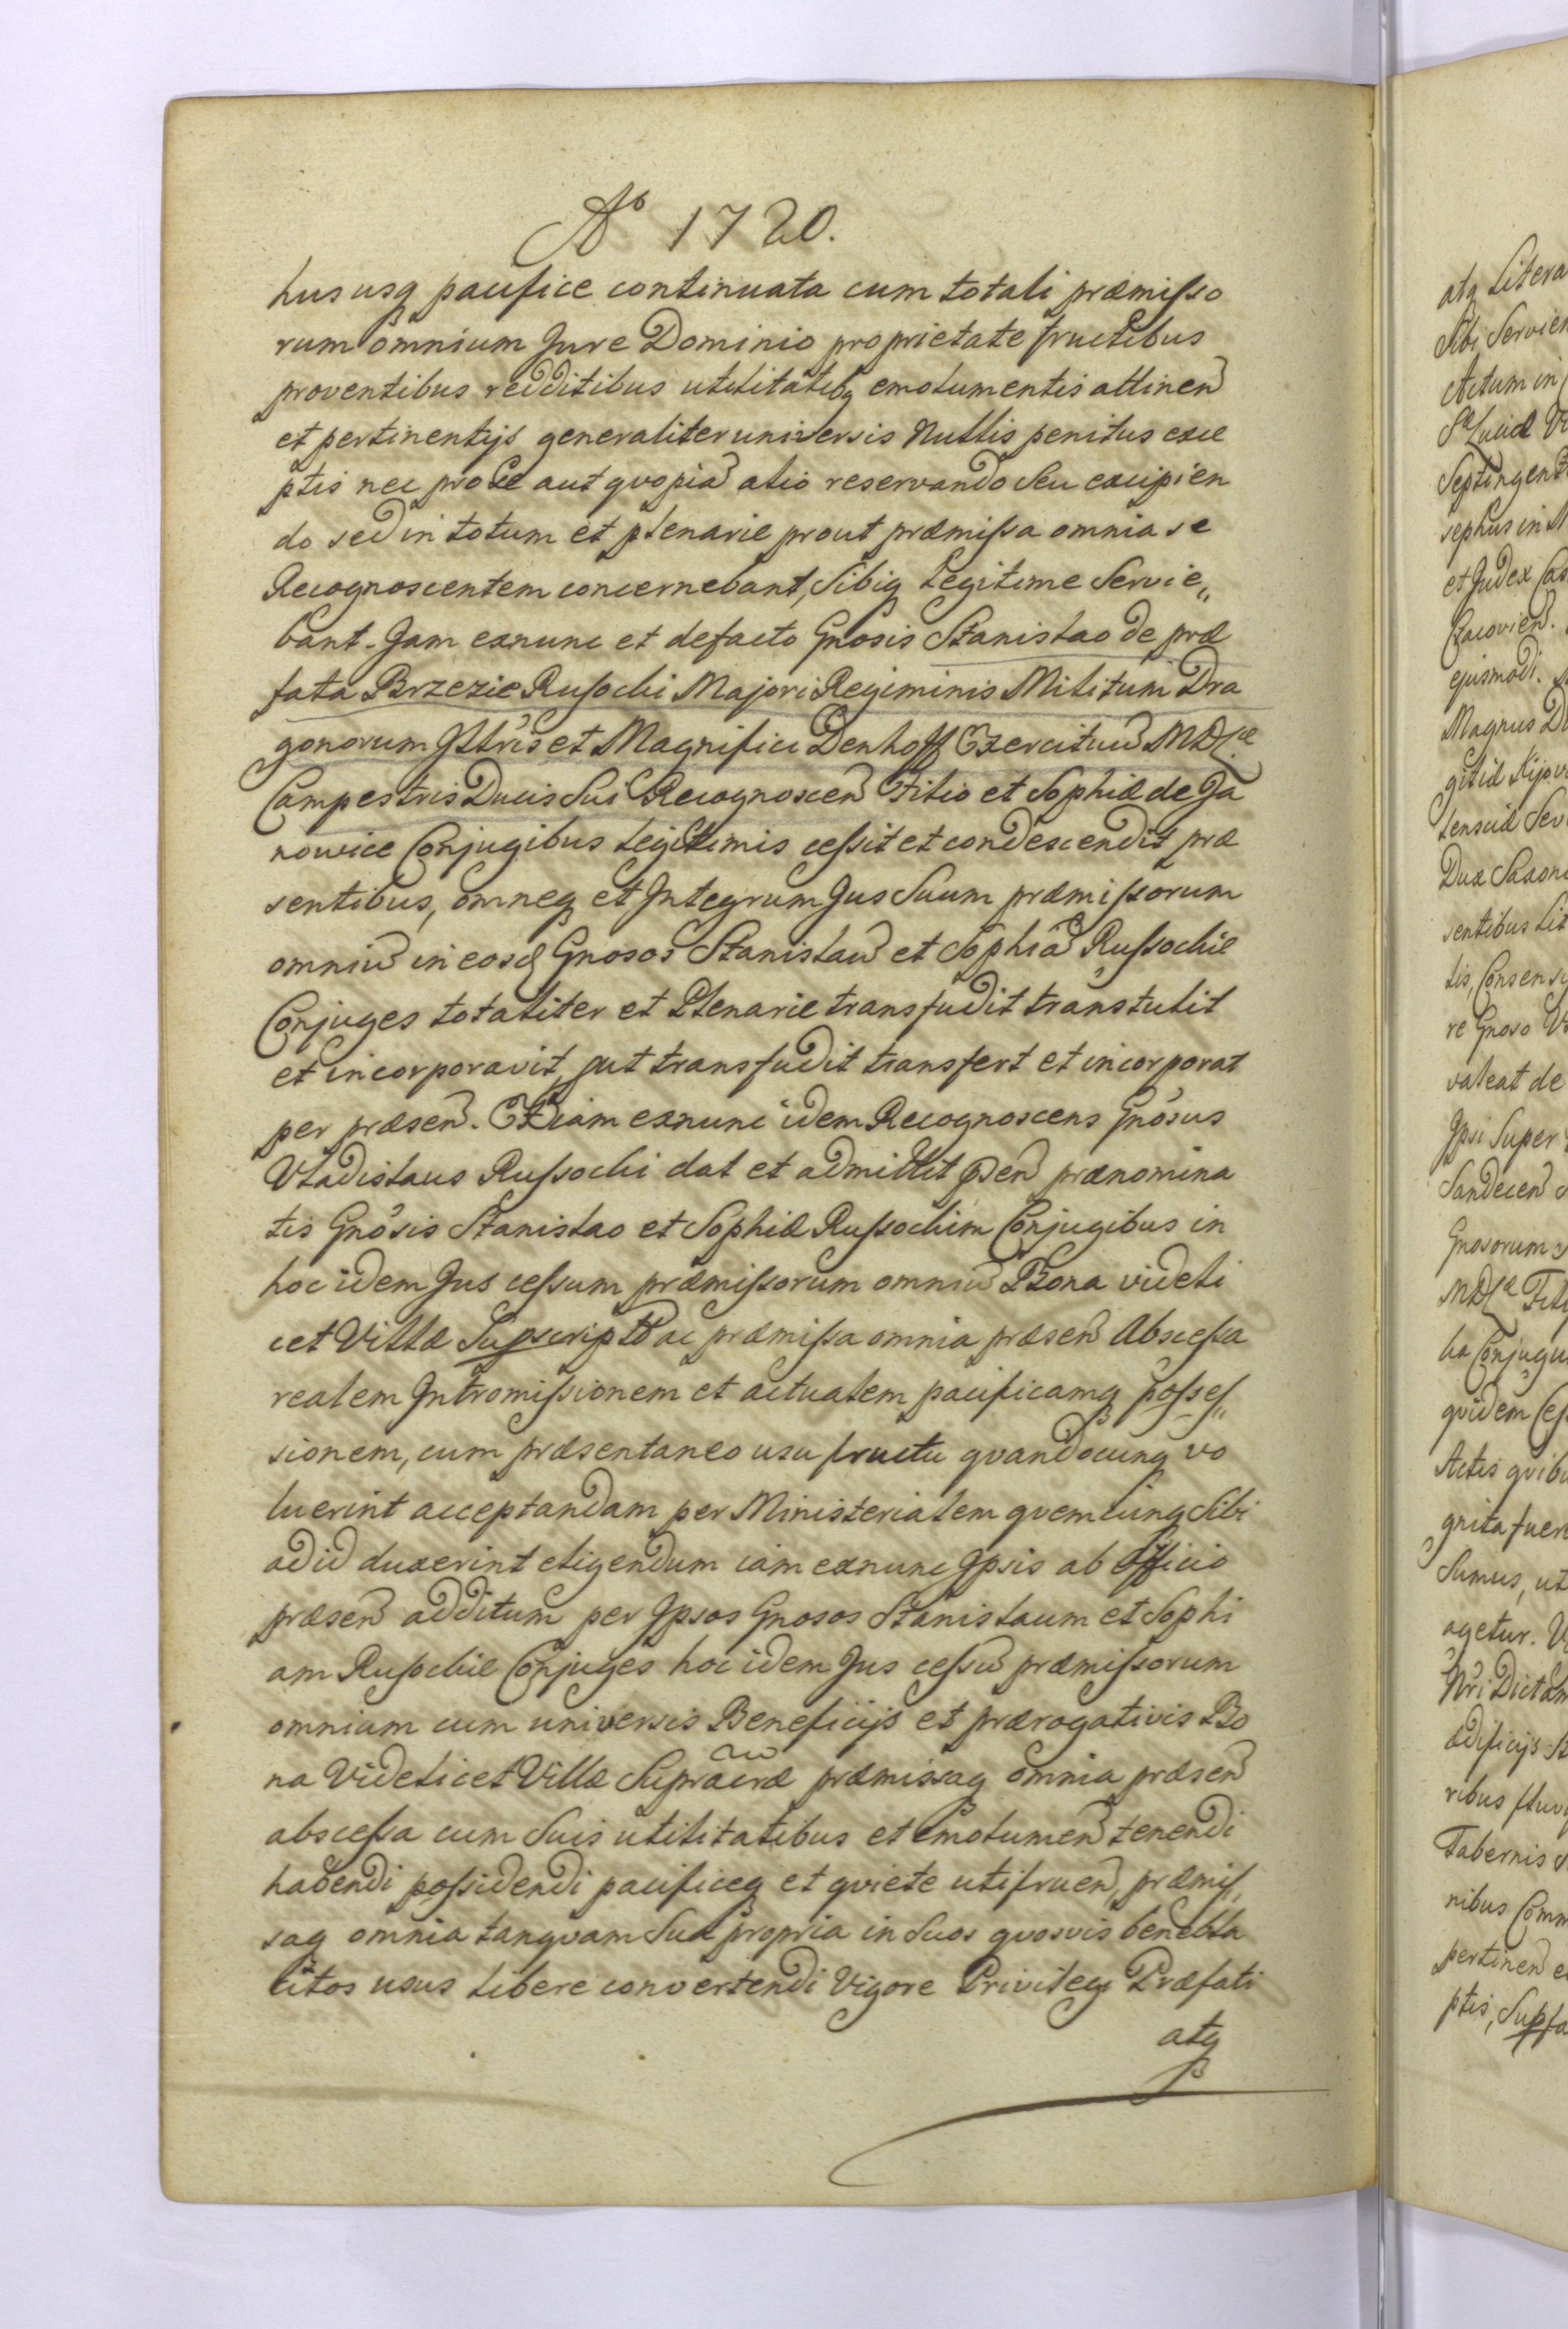 Aº 1720.
hususq pacifice continuata cum totali præmisso
rum omnium Jure Dominio proprietate fructibus
proventibus redditibus utilitatibq emolumentis attinen
et pertinentijs generaliter universis Nullis penitus exce
ptis nec pro se aut qvopiã alio reservando seu excipien
do sed in totum et plenarie prout præmissa omnia se
Recognoscentem concernebant, sibiq legitime Servie„
bant. Jam exnunc et defacto Gnosis Stanislao de præ
fata Brzezie Russocki Majori Regiminis Militum Dra
gonorum Jllris et Magnifici Denhoff Exercituũ MDL
Campestris Ducis Sui Recognoscen Filio et Sophiæ de Ja
nowice Conjugibus legitimis cessit et condescendit præ
sentibus, omneq et Integrum Jus Suum præmissorum
omniũ in eosd Gnosos Stanislaũ et Sophiã Russockie
Conjuges totaliter et Plenarie transfudit transtulit
et incorporavit, put transfudit transfert et incorporat
per præsen. Etiam exnunc idem Recognoscens Gnosus
Vladislaus Russocki dat et admittit psen prænomina
tis Gnosis Stanislao et Sophiæ Russockim Conjugibus in
hoc idem Jus cessum præmissorum omniũ Bona videli
cet Villæ Supscript ac præmissa omnia præsen Abscessa
realem Intromissionem et actualem pacificamq posses„
sionem, cum præsentaneo usu fructu qvandocunq vo
luerint acceptandam per Ministerialem qvemcunq Sibi
ad id duxerint eligendum iam exnunc Ipsis ab officio
præsen additum per Ipsos Gnosos Stanislaum et Sophi
am Russockie Conjuges hoc idem Jus cessũ præmissorum
omnium cum universis Beneficijs et prærogativis Bo
na Videlicet Villæ Supra præmissaq omnia præsen
abscessa cum Suis utilitatibus et Emolumen tenendi
habendi possidendi pacificeq et qviete utifruen, præmis„
saq omnia tanqvam Sua propria in Suos qvosvis benepla
citos usus libere convertendi Vigore Privilegij Præfati
atq
atq Litera
Sibi Servien
Actum in
Septingent
sephus in M
et Judex Cas
Cracovien.
ejusmodi.
Magnus Du
gitiæ Kijov
lensciæ Sev
Dux Saxoni
sentibus Lit
tis, Consens
re Gnoso V
valeat de
Ipsi Super
Sandecen
Gnosorum
Conjugu
qvidem Ces
Actis qvibu
Sumus, ut
agetur.
Nri
ædificijs
ribus fluv
Tabernis
nibus Comm
pertinen e
ptis,